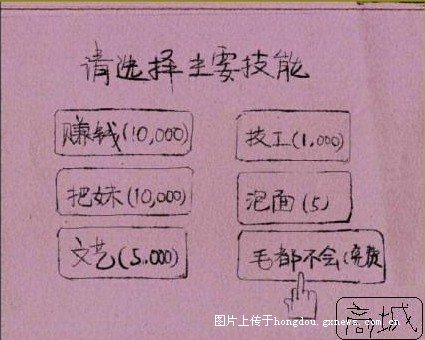 请选择主要技能
赚钱(10,000) 技工(1,000)
把妹(10,000) 泡面(5)
文艺(5,000) 毛都不会(免费
商城
图片上传于hongdou.gxnews.com.cn